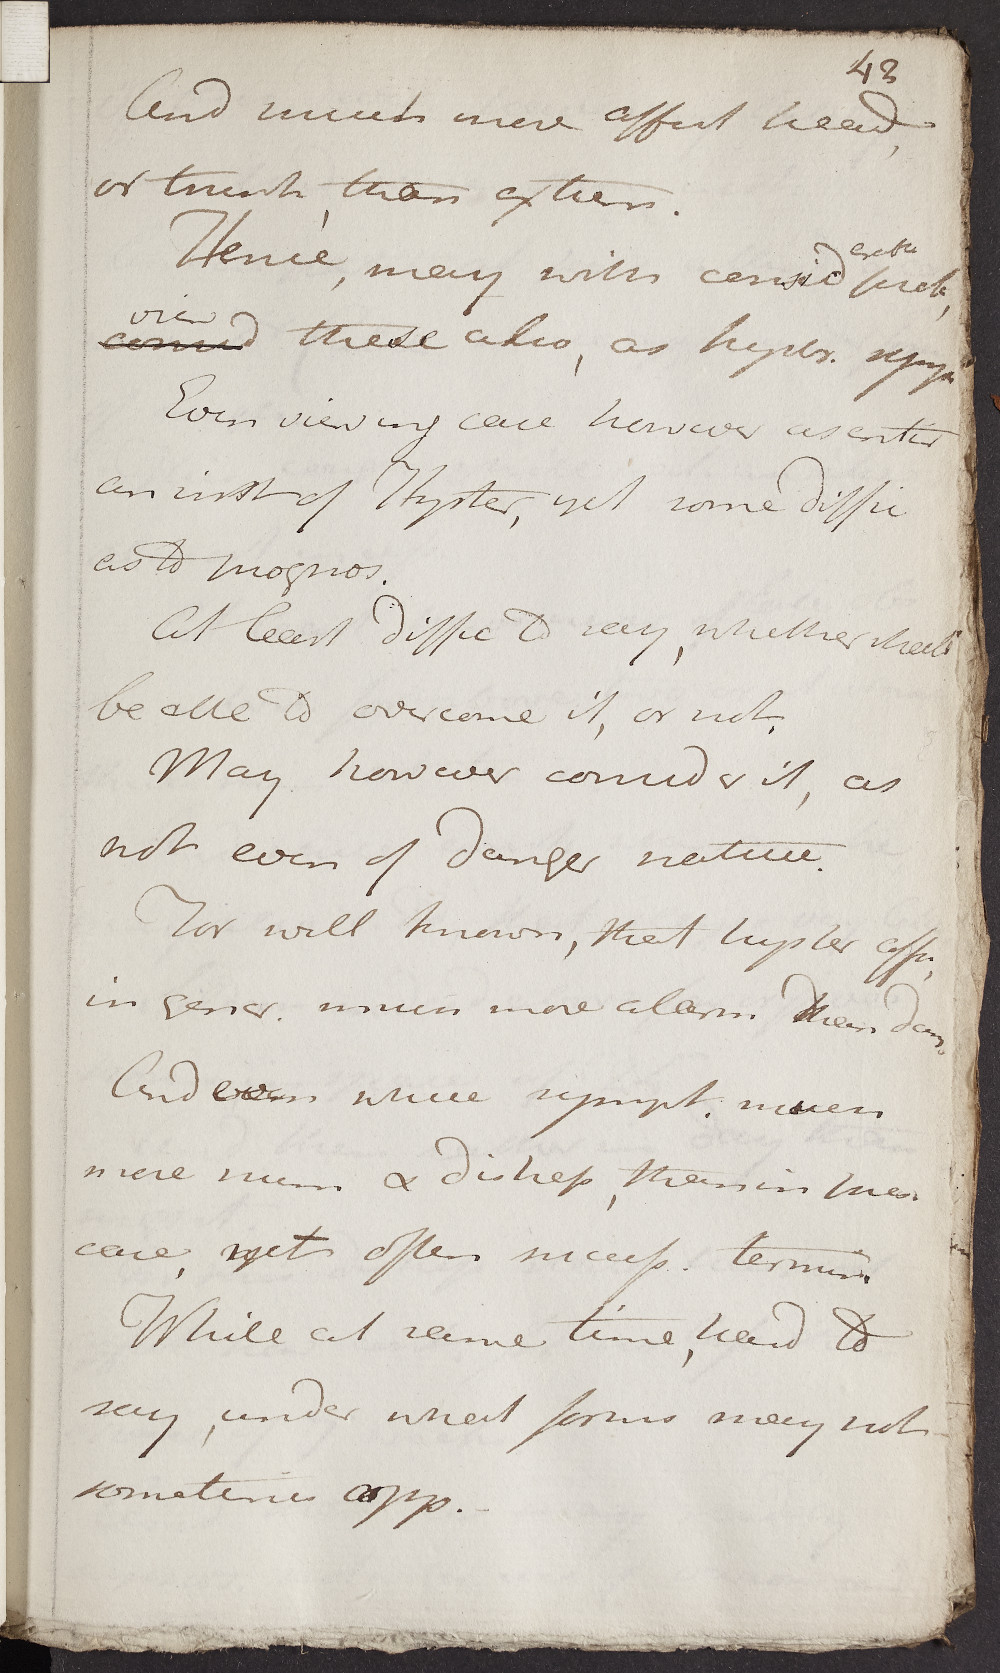 43
And much more affect head,
or trunk, than extrem.
Hence, may with consid prob,
view
consid these also, as hyster. symp
Even viewing case however as entir
an inst of Hyster, yet some diffic
as to prognos.
At least diffic to say, whether shall
be able to overcome it, or not.
May however consider it, as
not even of danger nature.
For well known, that hyster affec,
in gener. much more alarm than dang.
And even where sympt. much
more num & distress, than in pres
case, yet often success. termin.
While at same time, hard to
say, under what forms may not
sometimes app.